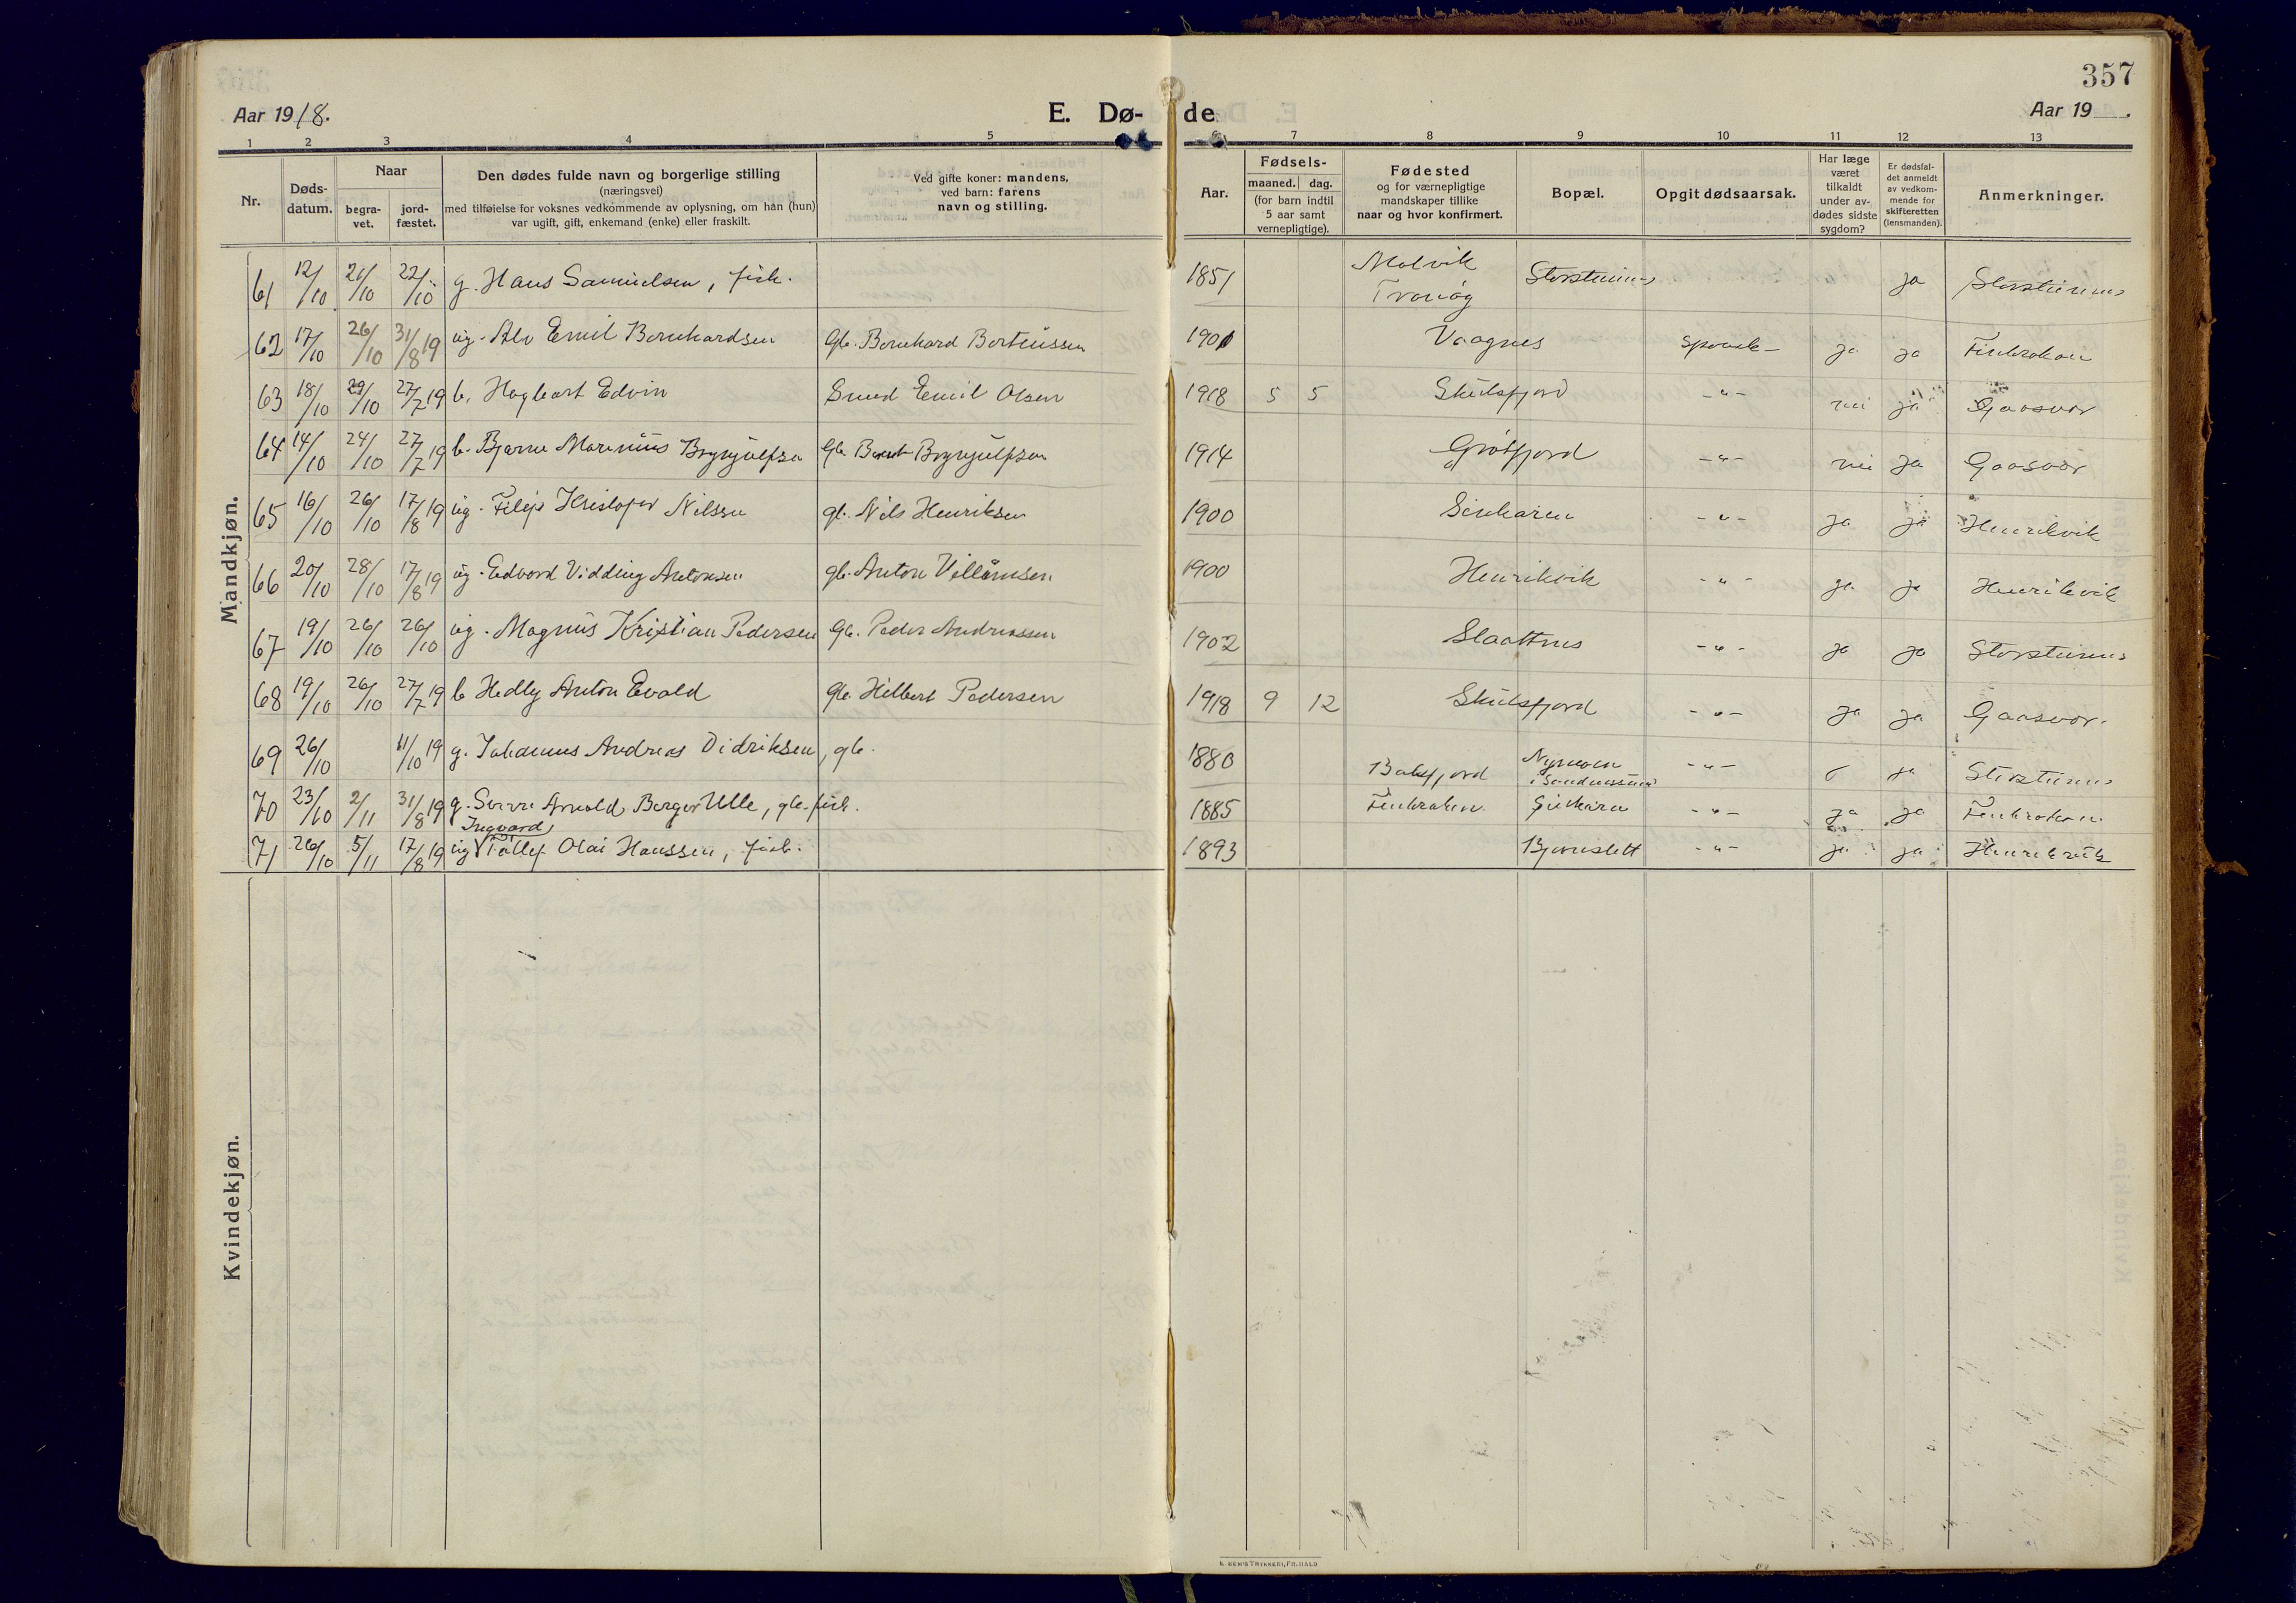 357
Aar 1918.
E. Dø-
de
Aar 19 .
1 2 3 4 5 6 7 8 9 10 11 12 13
Nr.
Døds-
datum.
Naar
begra-
vet.
jord-
fæstet.
Den dødes fulde navn og borgerlige stilling
(næringsvei)
med tilføielse for voksnes vedkommende av oplysning, om han (hun)
var ugift, gift, enkemand (enke) eller fraskilt.
Ved gifte koner: mandens,
ved barn: farens
navn og stilling.
Aar.
Fødsels-
maaned. dag.
(for barn indtil
5 aar samt
vernepligtige).
Fødested
og for værnepligtige
mandskaper tillike
naar og hvor konfirmert.
Bopæl.
Opgit dødsaarsak.
Har læge
været
tilkaldt
under av-
dødes sidste
sygdom?
Er dødsfal-
det anmeldt
av vedkom-
mende for
skifteretten
(lensmanden).
Anmerkninger.
Mandkjøn.
61 12/10 21/10 22/10 g. Hans Samuelsen, fisk. 1851 Malvik Storsteinnes ja Storsteinnes
62 17/10 26/10 31/8 19 ug. Alv Emil Bernhardsen Gb. Bernhard Berteussen 1901 Vaagnes spansk ja ja Finkroken
63 18/10 29/10 27/7 19 b. Hagbart Edvin Emil Olsen 1918 5 5 Skulsfjord -"- nei ja Gaasvær
64 14/10 24/10 27/7 19 b. Bjarne Marenius Brynjulfsen Gb. Brynjulfsen 1914 Grøtfjord -"- nei ja Gaasvær
65 16/10 26/10 17/8 19 ug. Filip Kristofer Nilssen gb. Nils Henriksen 1900 -"- ja ja Henrikvik
66 20/10 28/10 17/8 19 ug. Edvard Vidding Antonsen gb. Anton Villumsen 1900 Henrikvik -"- ja ja Henrikvik
67 19/10 26/10 26/10 ug. Magnus Kristian Pedersen Gb. Peder Andreassen 1902 Slaattnes -"- ja ja Storsteinnes
68 19/10 26/10 27/7 19 b Hedly Anton Evald Gb. Hilbert Pedersen 1918 9 12 Skulsfjord -"- ja ja Gaasvær.
69 26/10 11/10 19 g. Johannes Andreas Didriksen, gb. 1880 Balsfjord -"- ja Storsteinnes
70 23/10 2/11 31/8 19 g. Sverre Arnold Berger Ulle, gb. fisk. 1885 Finkroken -"- ja ja Finkroken.
Ingvard
71 26/10 5/11 17/8 19 ug Tollef Olai Hanssen, fisk. 1893 Bjørnslett -"- ja ja Henrikvik
Kvindekjøn.